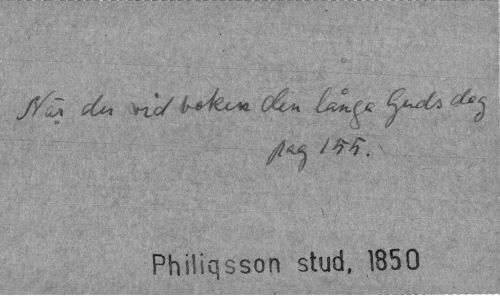 När du vid boken den långa Guds dag
pag 155.
Philiqsson stud, 1850